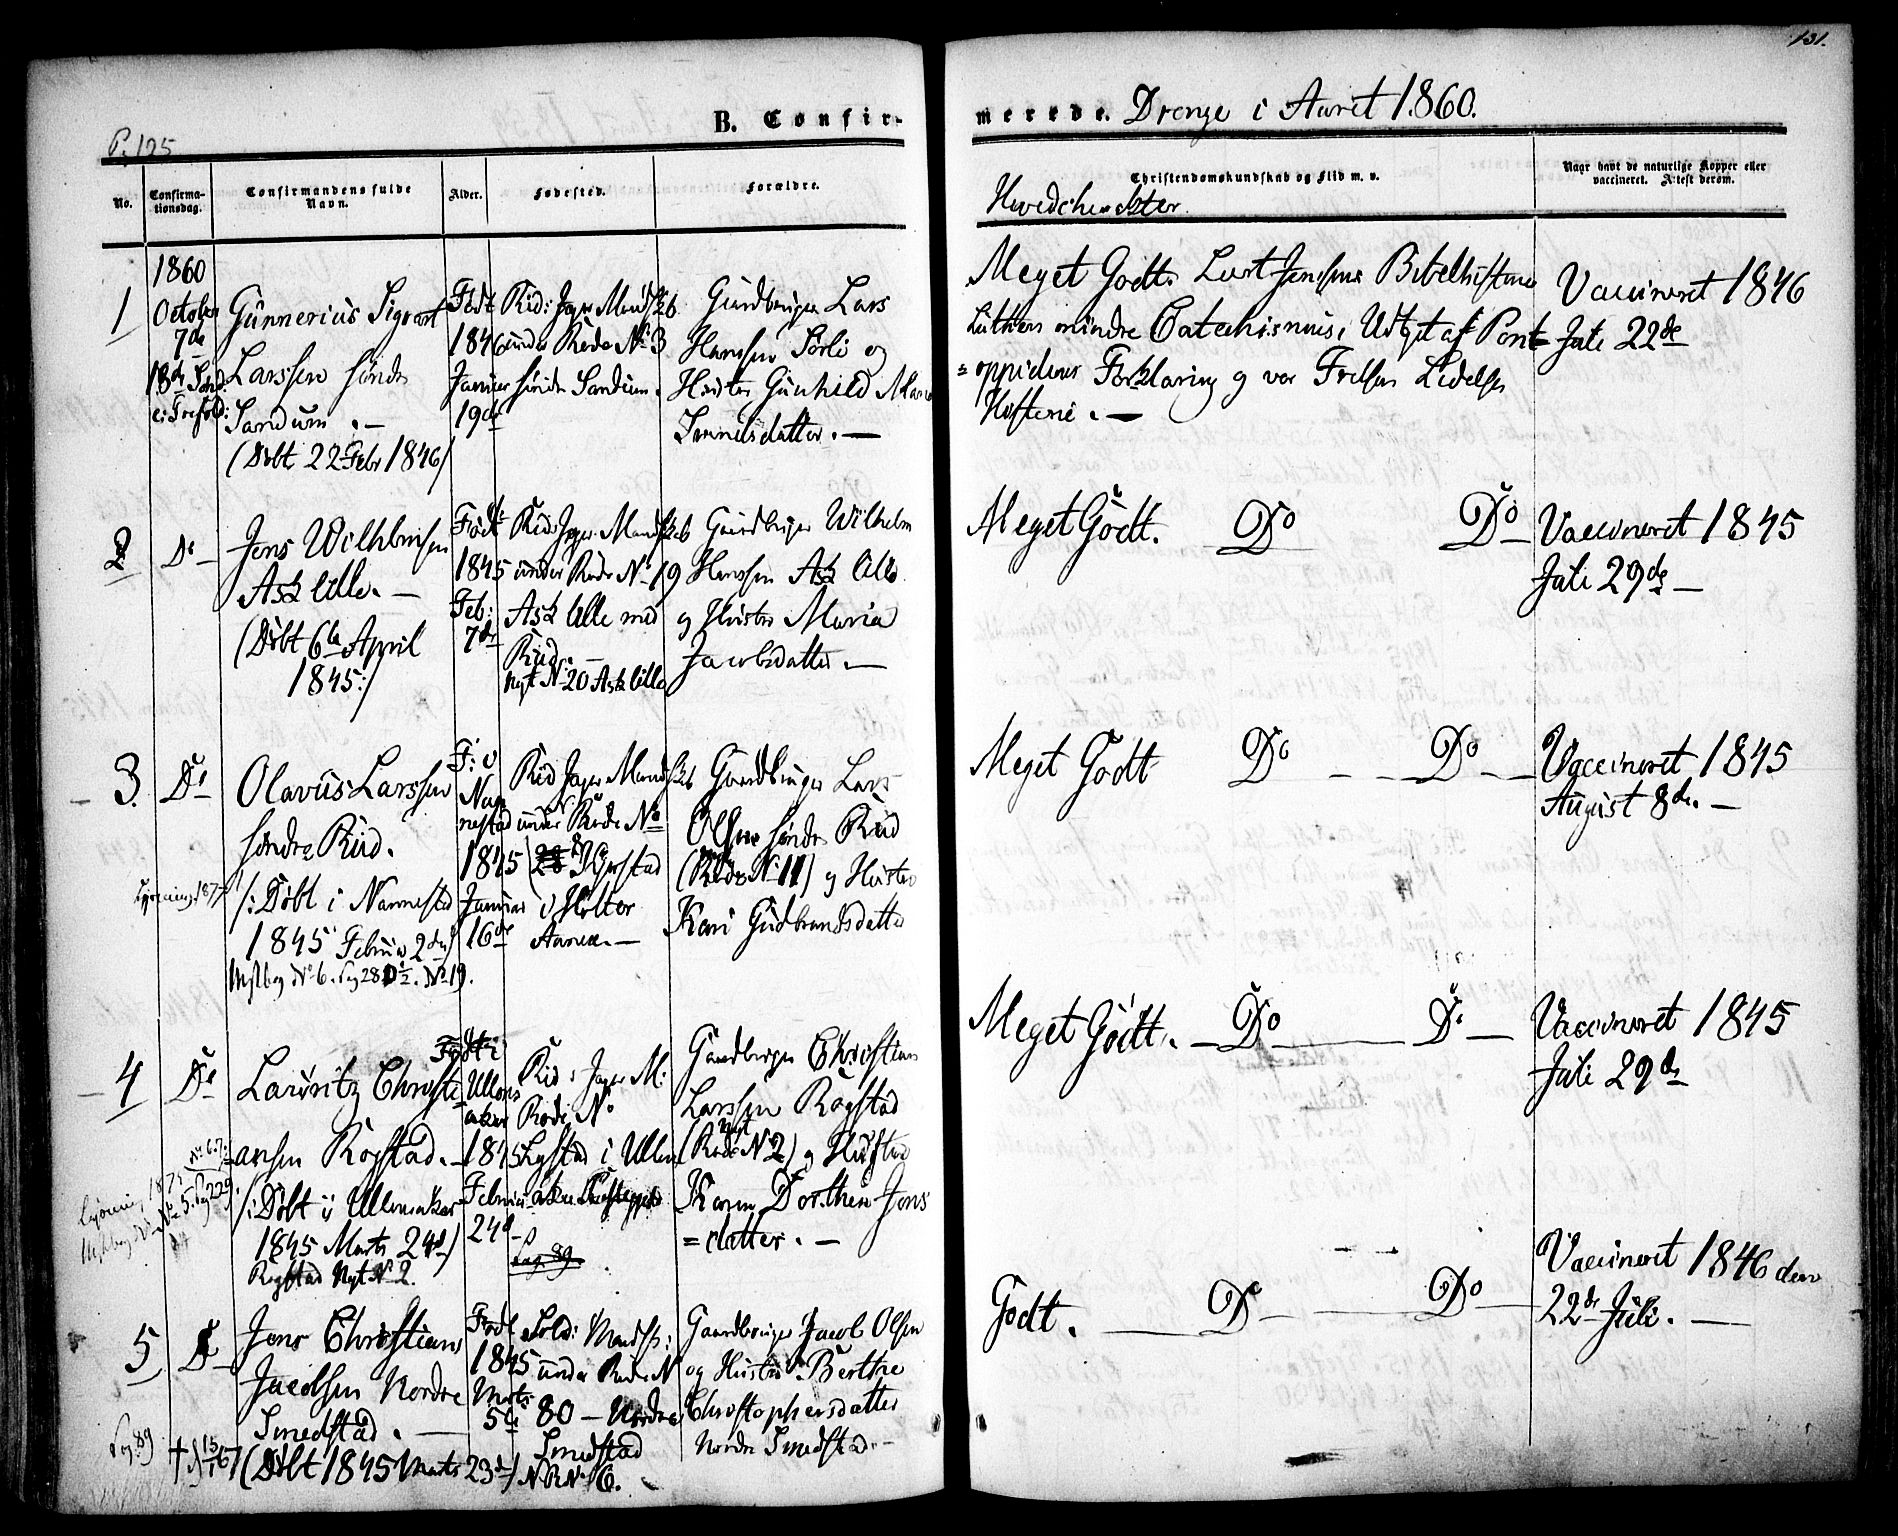 131.
P. 125
B. Confir-
merede. Drenge i Aaret 1860.
No.
Confirma-
tionsdag.
Confirmandens fulde
Navn.
Alder.
Fødested.
Forældre.
Christendomskundskab og Flid m. v.
Naar havt de naturlige Kopper eller
vaccineret. Attest derom.
1
1860
October
7de
18de Sønd
e: Trefold:
Gunnerius Sigvart
Larssen søndre
Sandum. —
(Døbt 22 Febr 1846)
Født
1846
Januar
19de
Rid: Jæger Mandskb
under Rode No 3
søndre Sandum.
Gaardbruger Lars
Hanssen Sørli og
Hustro Gunhild Maria
Meget Godt. Luthers mindre Catechismus, Udtog af Pont-
oppidans Forklaring og vor Frelsers Lidelses
Historie. —
Vaccineret 1846
Juli 22de
2
Do —
Jens Wilhelmsen
Ask lille. —
(Døbt 6te April
1845:)
Født
1845
Feb:
7de
Rid: Jæger Mandskb
under Rode No 19
Ask lille med
Rud. —
nyt No 20 Ask lille
Gaardbruger Wilhelm
Hanssen Ask lille
og Hustro Maria
Jacobsdatter. —
Meget Godt. Do Do —
Vaccineret 1845
Juli 29de —
3.
Do —
Olavus Larssen
søndre Rud.
/: Døbt i Nannestad
1845 Februar 2den)
F: i
Nan
nestad
1845
Januar
16de
Rid Jæger Mandskb
under Rode No
i Holter
Annex. —
Gaardbruger Lars
Olsen søndre Rud
(Rode No 11) og Hustro
Kari Gudbrandsdatter
Meget Godt Do — Do —
Vaccineret 1845
August 8de. —
4
Do
Lauritz Christi
ansen Rogstad. —
/: Døbt i Ullensaker
1845 Marts 24de)
Rogstad Nyt No 2.
Født i
Ullens
aker
1845
Februar
24d
Rid: Jæger M:
Rode No
Pag 89
Gaardbruger Christian
Larssen Rogstad
(Rode nyt No 2) og Hustro
Karen Dorthea Jens
=datter. —
Meget Godt. — Do — Do —
Vaccineret 1845
Juli 29de
5
Do —
Jens Christian
Jacobsen Nordre
Smedstad. —
(Døbt 1845 Marts 23de)
Pag. 89
Født
1845
Marts
5te
Sold: Mandsk:
under Rode No
80 — Nordre
Smedstad
N. R. No 6.
Gaardbruger Jacob Olsen
og Hustro Berthe
Christophersdatter
Nordre Smedstad. —
Godt. — Do — Do —
Vaccineret 1846 den
22de Juli. —